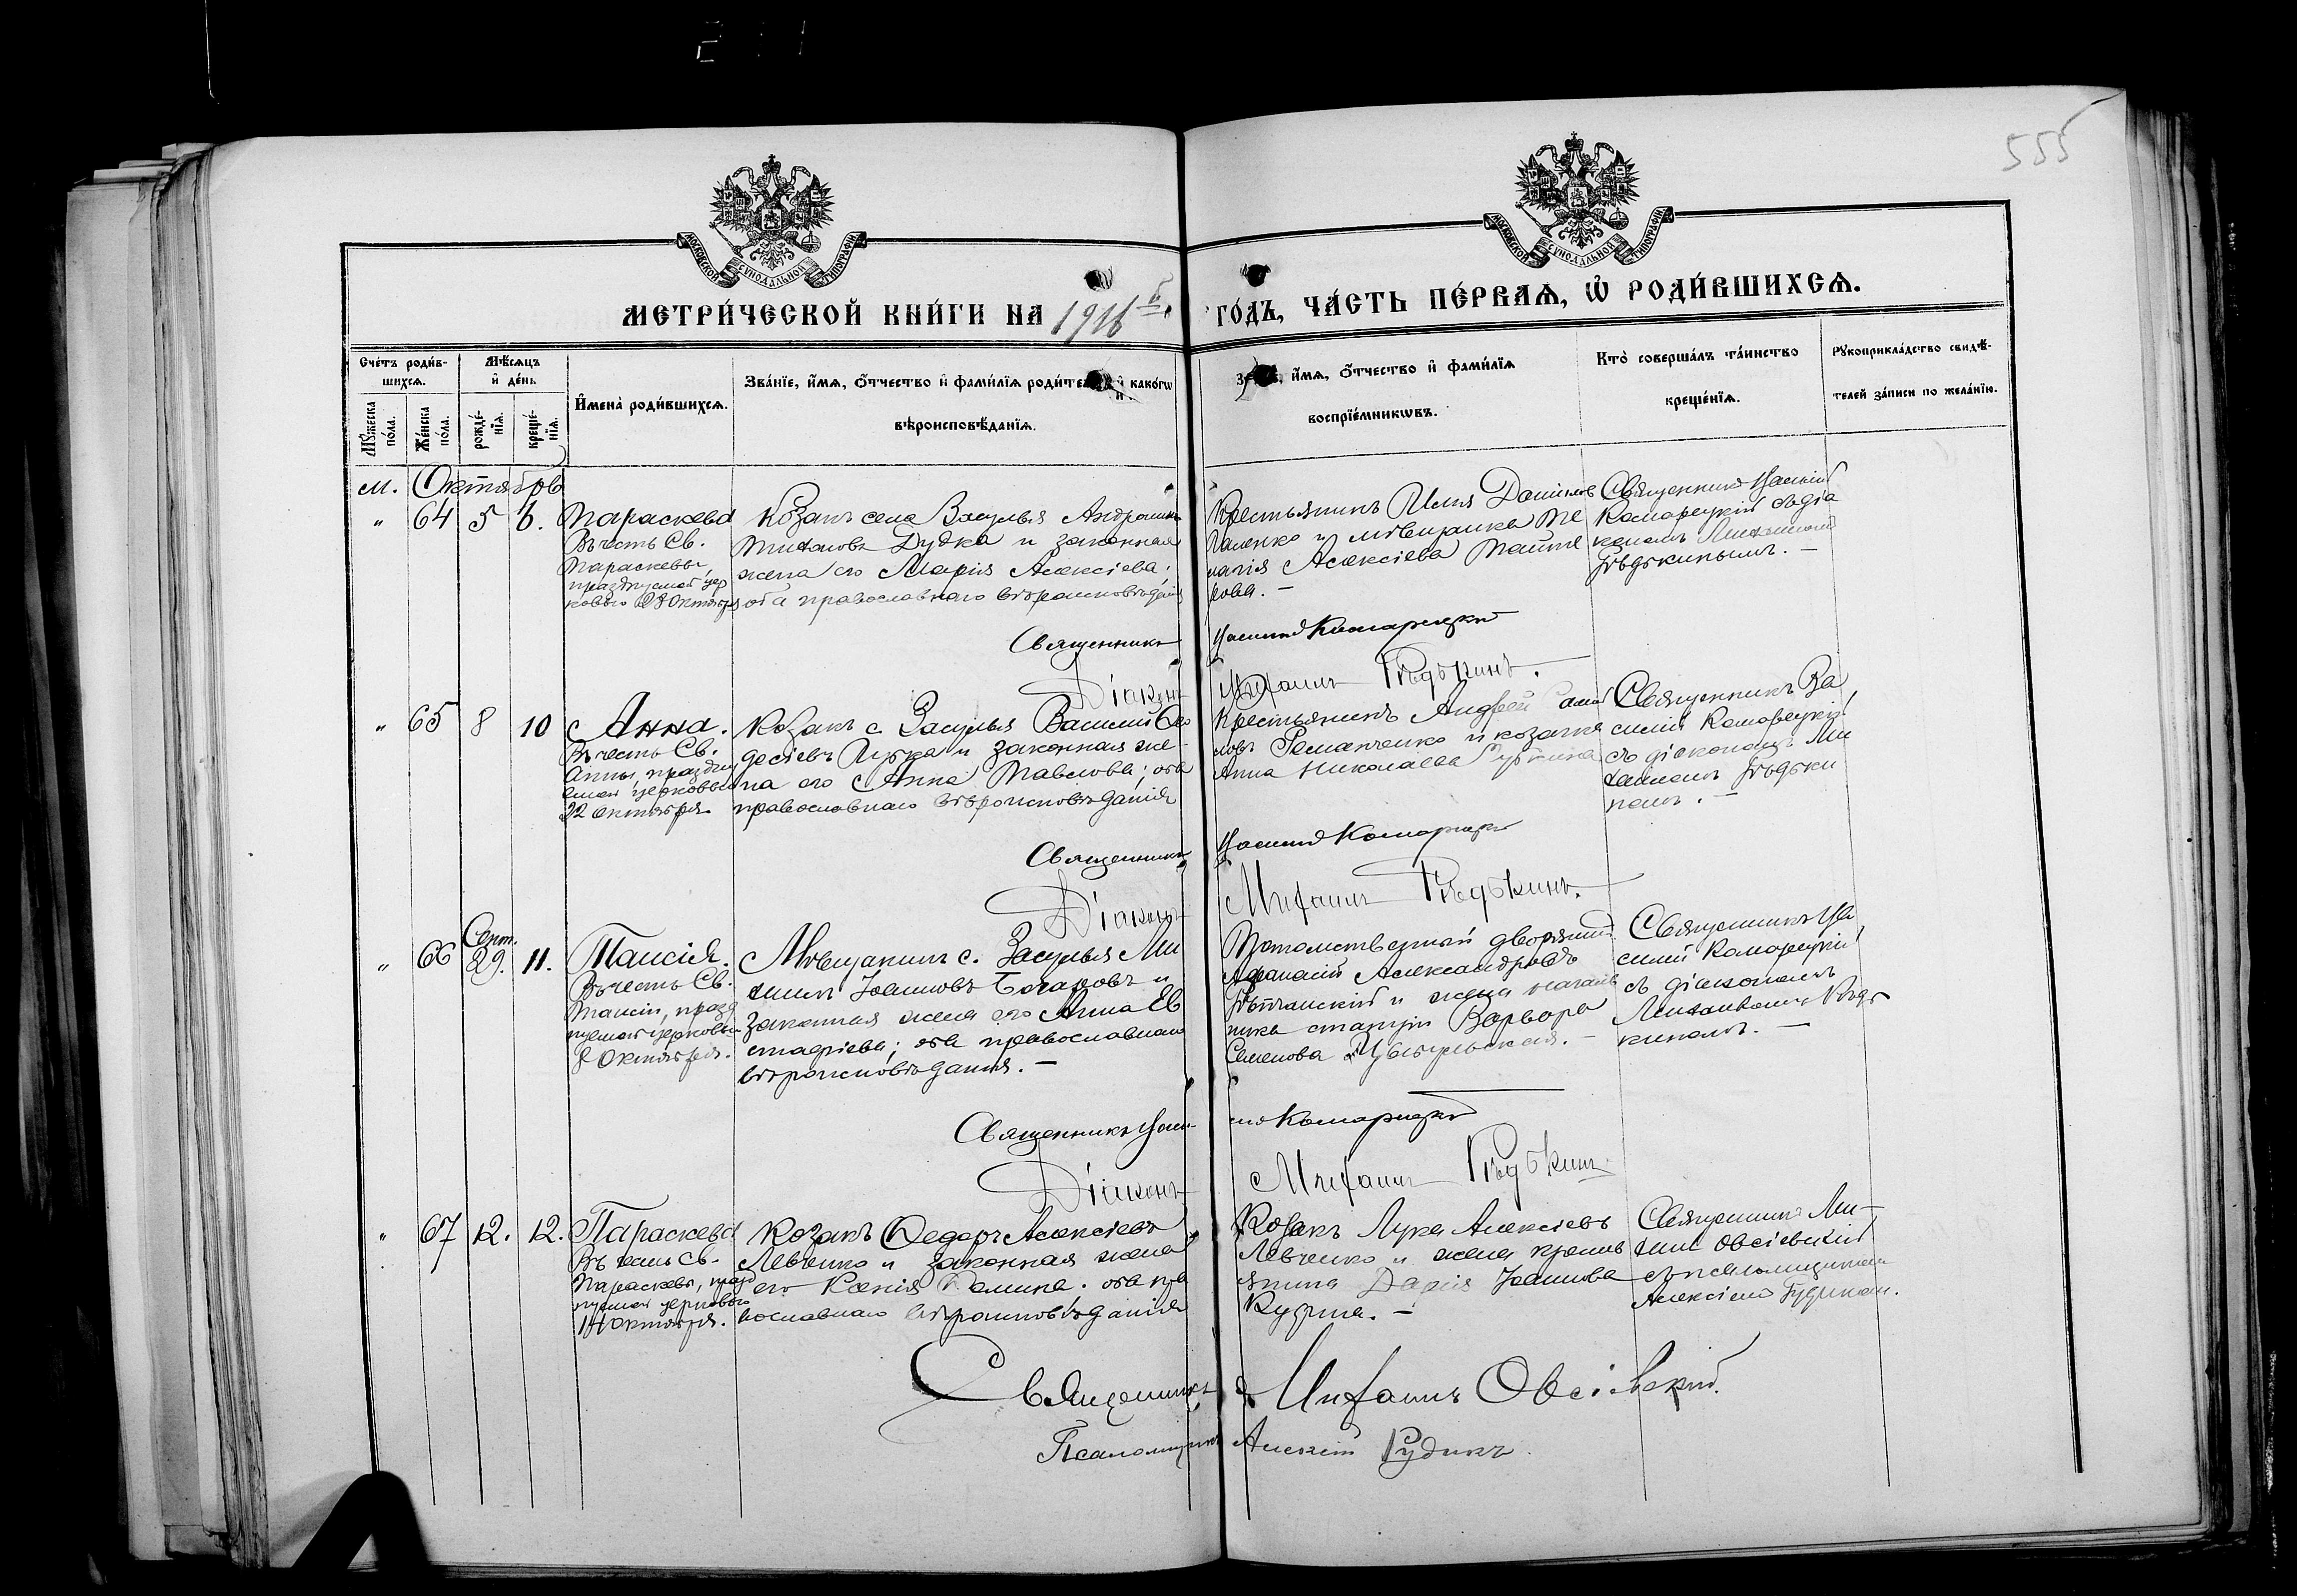 555
МОСКОВСКОЙ СѴНОДАЛЬНОЙ ТИПОГРАФІИ
МОСКОВСКОЙ СѴНОДАЛЬНОЙ ТИПОГРАФІИ
МЕТРИ́ЧЕСКОЙ КНИ́ГИ НА 1916 ГО́ДЪ, ЧА́СТЬ ПЕ́РВАѦ, Ѡ҆ РОДИ́ВШИХСѦ.
Сче́тъ роди́в-
шихсѧ.
Мꙋ́жеска по́ла.
Же́нска по́ла.
Мѣ́сѧцъ и҆ де́нь
рожде́-нїѧ.
креще́-нїѧ.
И҆мена̀ роди́вшихсѧ.
Зва́нїе, и҆́мѧ, ѻ҆́тчество и҆ фами́лїѧ роди́те и҆ како́гѡ
вѣроисповѣ́данїѧ.
и҆́мѧ, ѻ҆́тчество и҆ фами́лїѧ
воспрїе́мникѡвъ.
Кто̀ соверша́лъ та́инство
креще́нїѧ.
Рꙋкоприкла́дство свидѣ́-
телей за́писи по жела́нїю.
м. Октябрь
" 64 5 6.
Параскева
Въ честь Св.
Параскевы,
празднуемой цер
ковью 28 Октября
Козакъ села Засулья
Дудка и законная
жена его Марія Алексіева;
оба православнаго вѣроисповѣданія
Крестьянинъ Илья
и мѣщанка Пе
лагія Алексіева
рова. –
Священникъ Василій
Комарецкій съ діа
кономъ Михаиломъ
Рѣдькинымъ. –
Священникъ Василій Комарецкій
Діаконъ Михаилъ Рѣдькинъ.
" 65 8 10
Анна.
Въ честь Св.
Анны, праздну
емой церковью
22 Октября
Козакъ с. Засулья Василій Ѳео
досіевъ и законная же
на его Анна Павлова; оба
православнаго вѣроисповѣданія
Крестьянинъ Андрей Самой
ловъ Романченко и козачка
Анна Николаева
Священникъ Ва
силій Комарецкій
съ діакономъ Ми
хаиломъ Рѣдьки
нымъ. –
Священникъ Василій Комарецкій
Діаконъ Михаилъ Рѣдькинъ.
" 66 Сент. 29. 11.
Таисія.
Въ честь Св.
Таисіи, празд
нуемой церковью
8 Октября.
Мѣщанинъ с. Засулья Ми
хаилъ Іоанновъ и
законная жена его Анна Ев
стафіева; оба православнаго
вѣроисповѣданія. –
Потомственный дворянинъ
Афанасій Александровъ
и жена началь
ника станціи Варвара
Семенова
Священникъ Ва
силій Комарецкій
съ діакономъ
Михаиломъ Рѣдь
кинымъ. –
Священникъ Васи- лій Комарецкій
Діаконъ Михаилъ Рѣдькинъ
" 67 12. 12.
Параскева
Въ честь Св.
Параскевы, празд
нуемой церковью
14 Октября.
Козакъ Ѳедоръ Алексіевъ
Левченко и законная жена
его Ксенія оба пра
вославнаго вѣроисповѣданія
Козакъ Лука Алексіевъ
Левченко и жена кресть
янина Дарія Іоаннова
Священникъ Ми-
хаилъ Овсіевскій
съ псаломщикомъ
Алексіемъ Гудикомъ.
Священникъ Михаилъ Овсіевскій.
Псаломщикъ Алексій Гудикъ.